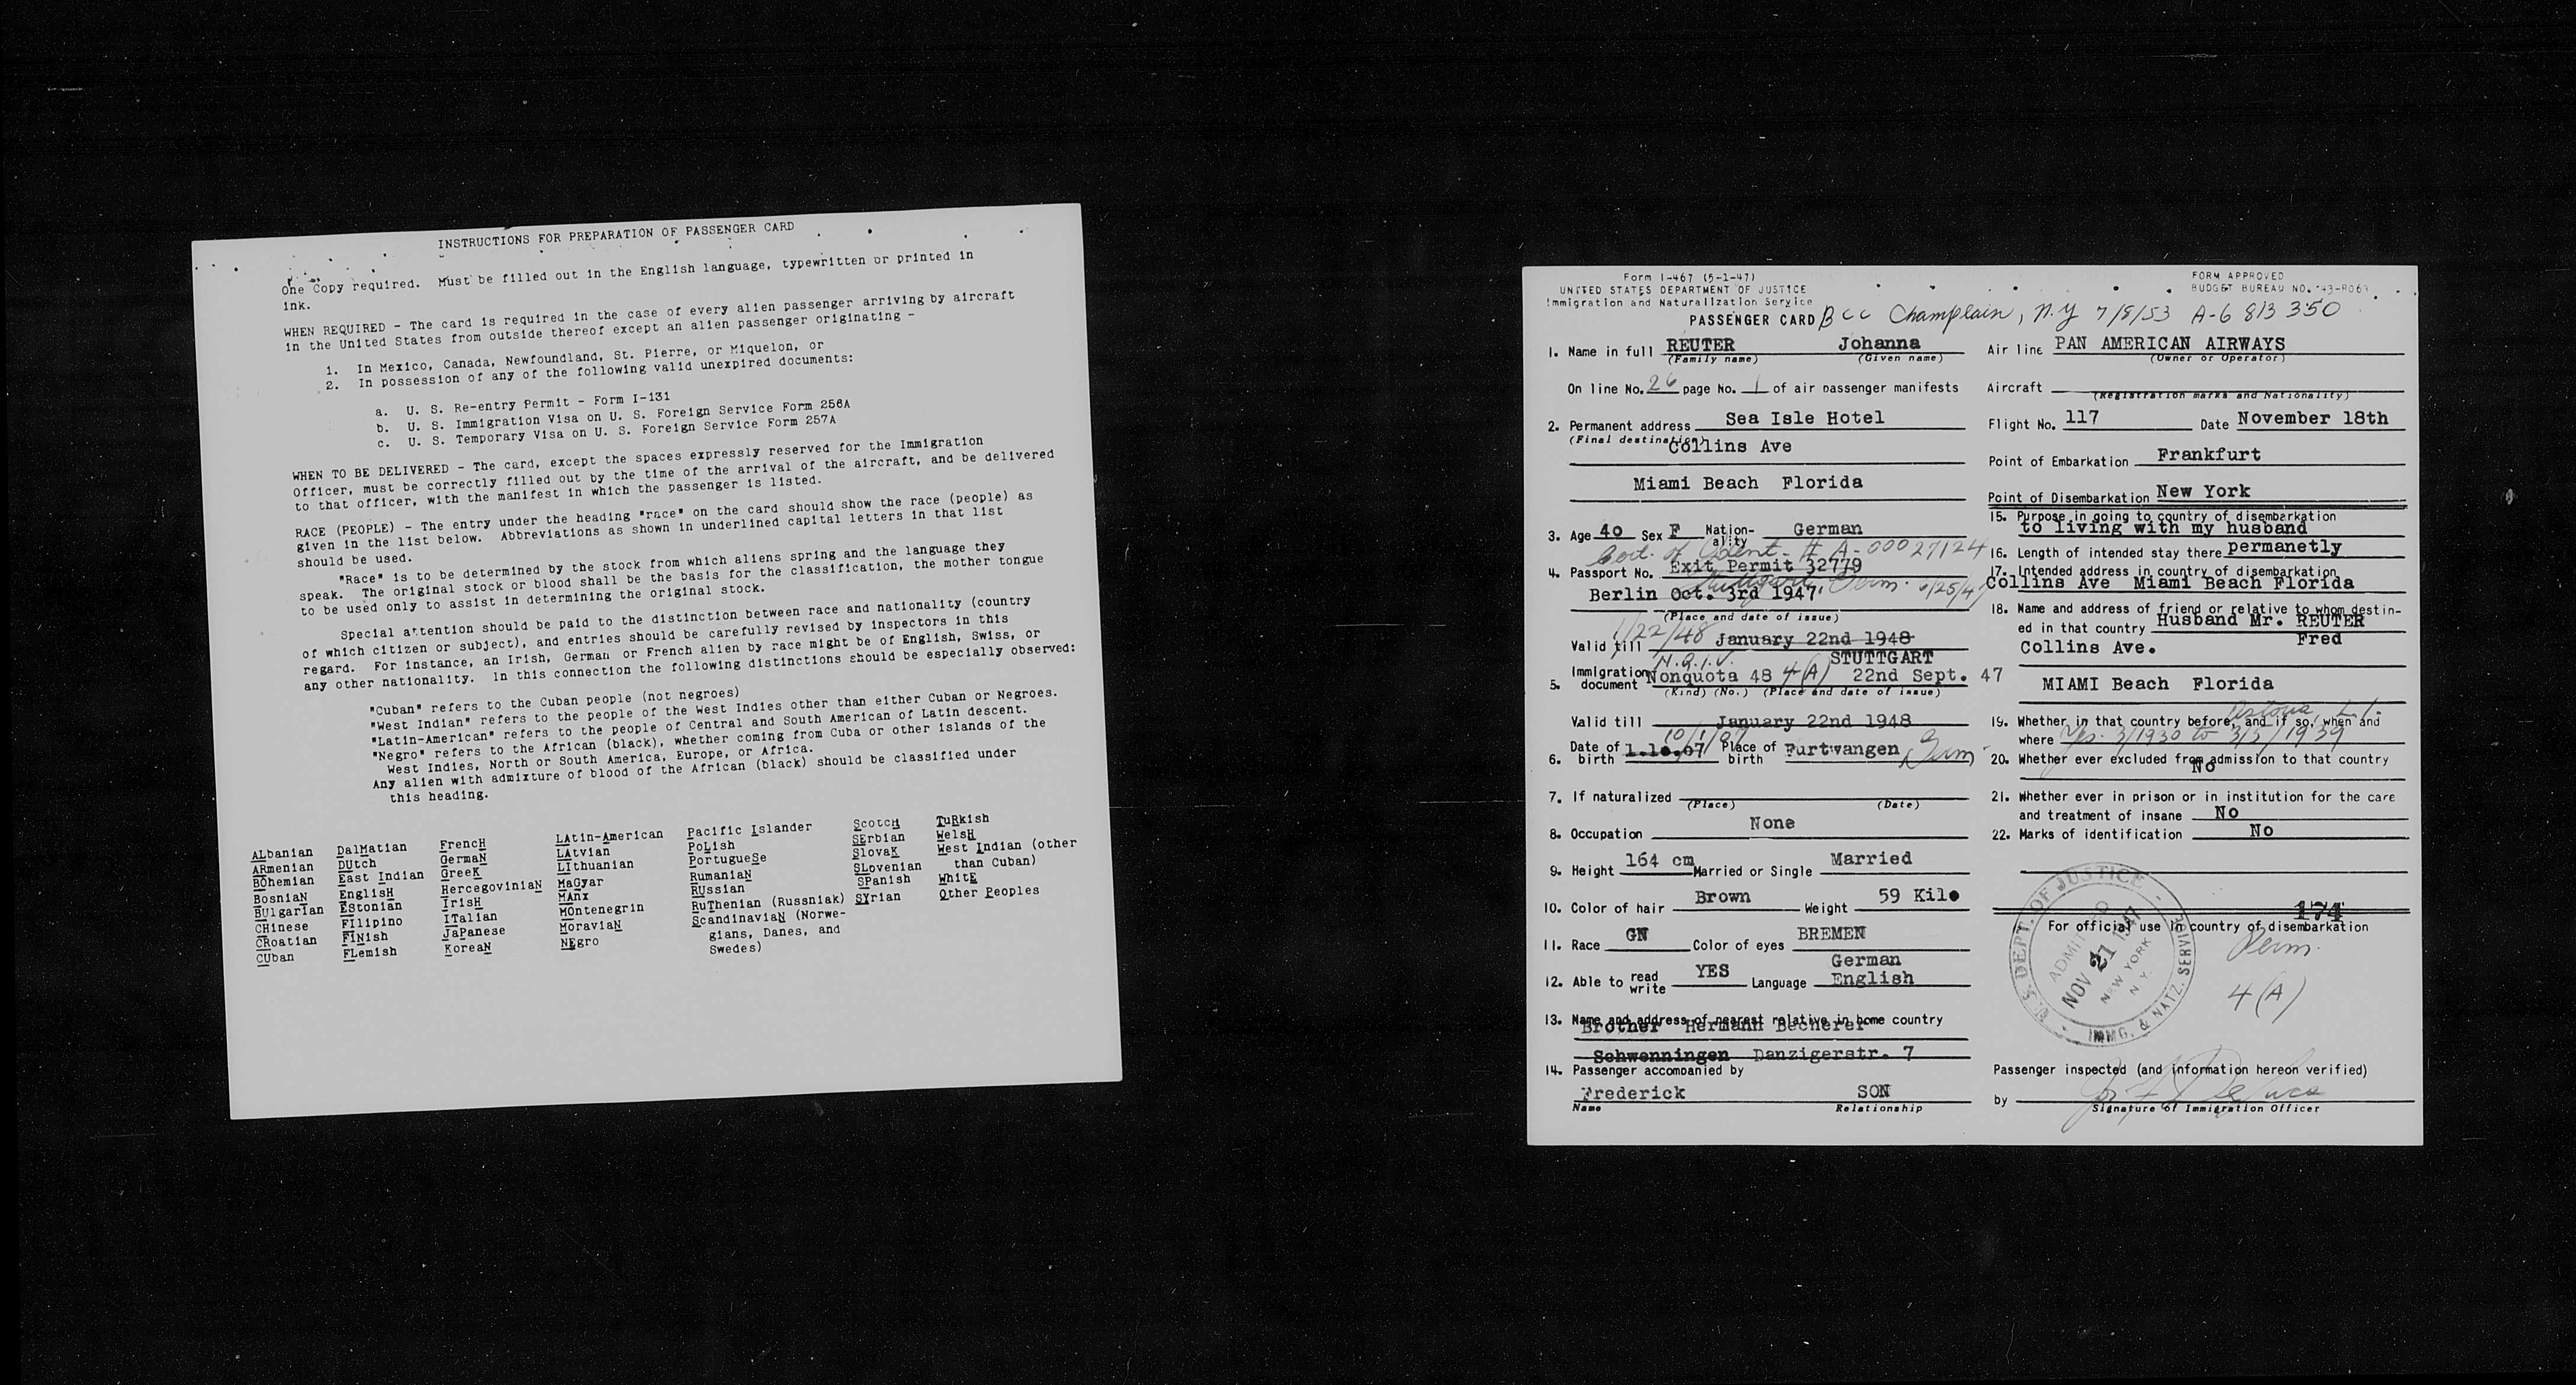 INSTRUCTIONS FOR PREPARATION OF PASSENGER CARD
One Copy required. Must be filled out in the English language, typewritten or printed in
ink.
WHEN REQUIRED - The card is required in the case of every alien passenger arriving by aircraft
in the United States from outside thereof except an alien passenger originating -
1. In Mexico, Canada, Newfoundland, St. Pierre, or Miquelon, or
2. In possession of any of the following valid unexpired documents:
a. U. S. Re-entry Permit - Form I-131
b. U. S. Immigration Visa on U. S. Foreign Service Form 256A
c. U. S. Temporary Visa on U. S. Foreign Service Form 257A
WHEN TO BE DELIVERED - The card, except the spaces expressly reserved for the Immigration
Officer, must be correctly filled out by the time of the arrival of the aircraft, and be delivered
to that officer, with the manifest in which the passenger is listed.
RACE (PEOPLE) - The entry under the heading "race" on the card should show the race (people) as
given in the list below. Abbreviations as shown in underlined capital letters in that list
should be used.
"Race" is to be determined by the stock from which aliens spring and the language they
speak. The original stock or blood shall be the basis for the classification, the mother tongue
to be used only to assist in determining the original stock.
Special attention should be paid to the distinction between race and nationality (country
of which citizen or subject), and entries should be carefully revised by inspectors in this
regard. For instance, an Irish, German or French alien by race might be of English, Swiss, or
any other nationality. In this connection the following distinctions should be especially observed:
"Cuban" refers to the Cuban people (not negroes)
"West Indian" refers to the people of the West Indies other than either Cuban or Negroes.
"Latin-American" refers to the people of Central and South American of Latin descent.
"Negro" refers to the African (black), whether coming from Cuba or other islands of the
West Indies, North or South America, Europe, or Africa.
Any alien with admixture of blood of the African (black) should be classified under
this heading.
ALbanian
ARmenian
BOhemian
BosniaN
BUlgarIan
CHinese
CRoatian
CUban
DalMatian
DUtch
East Indian
EnglisH
EStonian
FIlipino
FINish
FLemish
FrencH
GermaN
GreeK
HercegoviniaN
IrisH
ITalian
JaPanese
KoreaN
LAtin-American
LAtvian
LIthuanian
MaGyar
MAnx
MOntenegrin
MoraviaN
NEgro
Pacific Islander
PoLish
PortugueSe
RumaniaN
RUssian
RuThenian (Russniak)
ScandinaviaN (Norwe-
gians, Danes, and
Swedes)
ScotcH
SErbian
SlovaK
SLovenian
SPanish
SYrian
TuRkish
WelsH
West Indian (other
than Cuban)
WhitE
Other Peoples
Form I-467 (5-1-47)
UNITED STATES DEPARTMENT OF JUSTICE
Immigration and Naturalization Service
FORM APPROVED
BUDGET BUREAU NO.
PASSENGER CARD BCC Champlain, N.Y 7/8/53 A-6 813 350
1. Name in full REUTER Johanna
(Family name) (Given name)
On line No. 26 page No. 1 of air passenger manifests
2. Permanent address Sea Isle Hotel
(Final destination) Collins Ave
Miami Beach Florida
3. Age 40 Sex F Nation-ality German
Cert. of Ident- # A-00027124
4. Passport No. Exit Permit 32779
Stuttgart, Germ. 6/25/47
Berlin Oct. 3rd 1947
(Place and date of issue)
1/22/48
Valid till January 22nd 1948
N.Q.I.V. STUTTGART
5. Immigration document Nonquota 48 4(A) 22nd Sept. 47
(Kind) (No.) (Place and date of issue)
Valid till January 22nd 1948
10/1/07
6. Date of birth 1.10.07 Place of birth Furtwangen Germ
7. If naturalized
(Place) (Date)
8. Occupation None
9. Height 164 cm Married or Single Married
10. Color of hair Brown Weight 59 Kilo
11. Race GN Color of eyes BREMEN
12. Able to read write YES Language German
English
13. Name and address of nearest relative in home country
Brother Hermann Becherer
Schwenningen Danzigerstr. 7
14. Passenger accompanied by
Frederick SON
Name Relationship
Air line PAN AMERICAN AIRWAYS
(Owner or Operator)
Aircraft
(Registration marks and Nationality)
Flight No. 117 Date November 18th
Point of Embarkation Frankfurt
Point of Disembarkation New York
15. Purpose in going to country of disembarkation
to living with my husband
16. Length of intended stay there permanetly
17. Intended address in country of disembarkation
Collins Ave Miami Beach Florida
18. Name and address of friend or relative to whom destin-
ed in that country Husband Mr. REUTER
Fred
Collins Ave.
MIAMI Beach Florida
Astoria L.I.
19. Whether in that country before, and if so, when and
where Yes. 3/1930 to 3/3/1939
20. Whether ever excluded from admission to that country
No
21. Whether ever in prison or in institution for the care
and treatment of insane No
22. Marks of identification No
174
For official use in country of disembarkation
Perm.
4(A)
U. S. DEPT. OF JUSTICE
ADMITTED
NOV 21 1947
NEW YORK
N. Y.
IMMG. & NATZ. SERVICE
Passenger inspected (and information hereon verified)
by
Signature of Immigration Officer